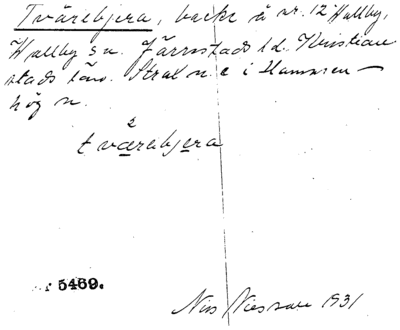 Tvärebjera, backe å nr. 12 Hallby,
Hallby sn. Järrestads hd. Kristian
stads län. Strax n. e i Hammen
hög n.
2
tværebjera
5469.
Nils Nilsson 1931